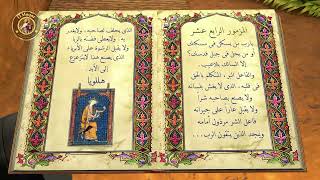 المزمور الرابع عشر
يارب من يسكن في مسكنك
أو من يحل في جبل قدسك؟
إلا السالك بلا عيب،
والفاعل البر، المتكلم بالحق
في قلبه، الذي لا يغش بلسانه
ولا يصنع بصاحبه شراً
ولا يقبل عاراً على جيرانه
فاعل الشر مرذول أمامه
ويمجد الذين يتقون الرب...
الذي يحلف لصاحبه ولايغدر
به، ولايعطي فضته بالربا
ولا يقبل الرشوة على الأبرياء،
الذي يصنع هذا لايتزعزع
إلى الأبد
هللويا